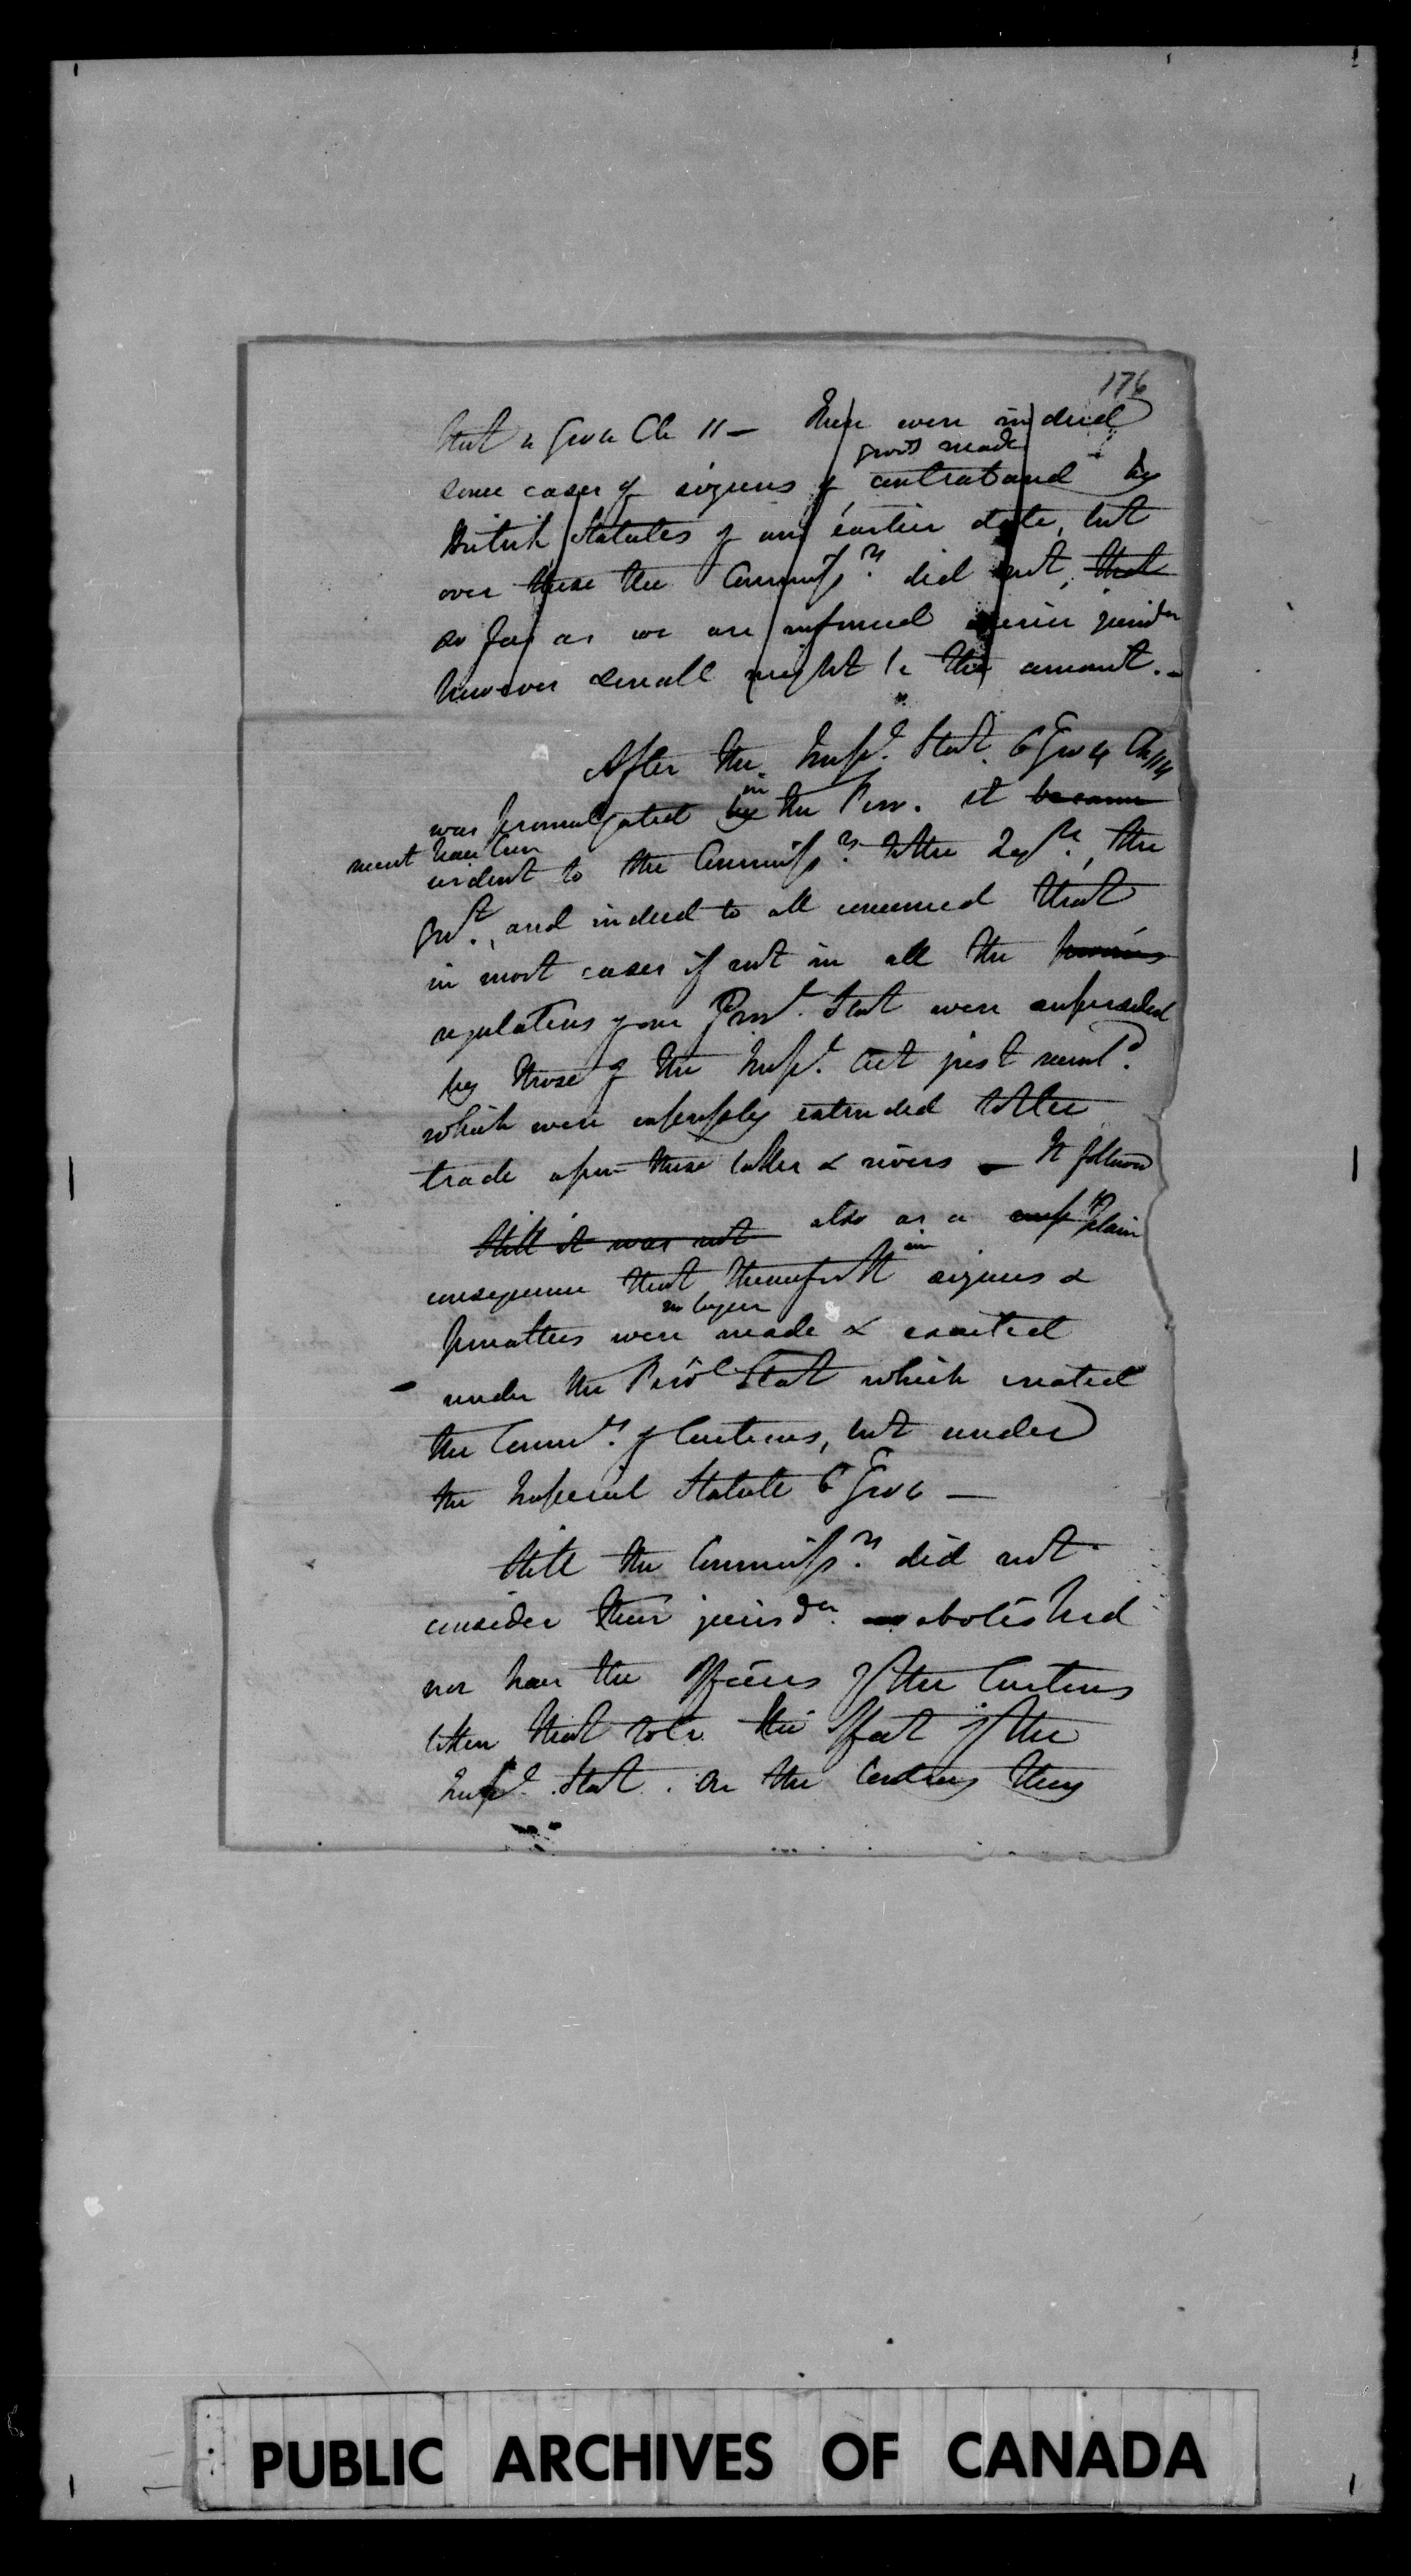 176
Stat 4 Geo 4 Ch 11 — There were indeed
goods made
some cases of seizures of contraband by
British Statutes of an earlier date, but
over these the Commissrs. did not, that
so far as we are informed exercise jurisdn
however small might be the amount. —
After the Impl. Stat. 6 Geo 4 Ch 114
in
was promulgated by the Prov. it became
must have been
evident to the Commissrs. to the Legre., the
Govt., and indeed to all concerned that
in most cases if not in all the
regulations of our Provl. Stat were superseded
by those of the Impl. Act just
which were expressly extended to the
trade upon these lakes & rivers — It follows
Still it was not also as a plain
in
consequence that thenceforth seizures &
no longer
were made & exacted
under the Provl Stat which created
the of Customs, but under
the Imperial Statute 6 Geo 4 —
Still the Commissrs. did not
consider their jurisdn. abolished
nor have the Officers of the Customs
taken that to be the effect of the
Impl. Stat. On the Contrary they
PUBLIC ARCHIVES OF CANADA